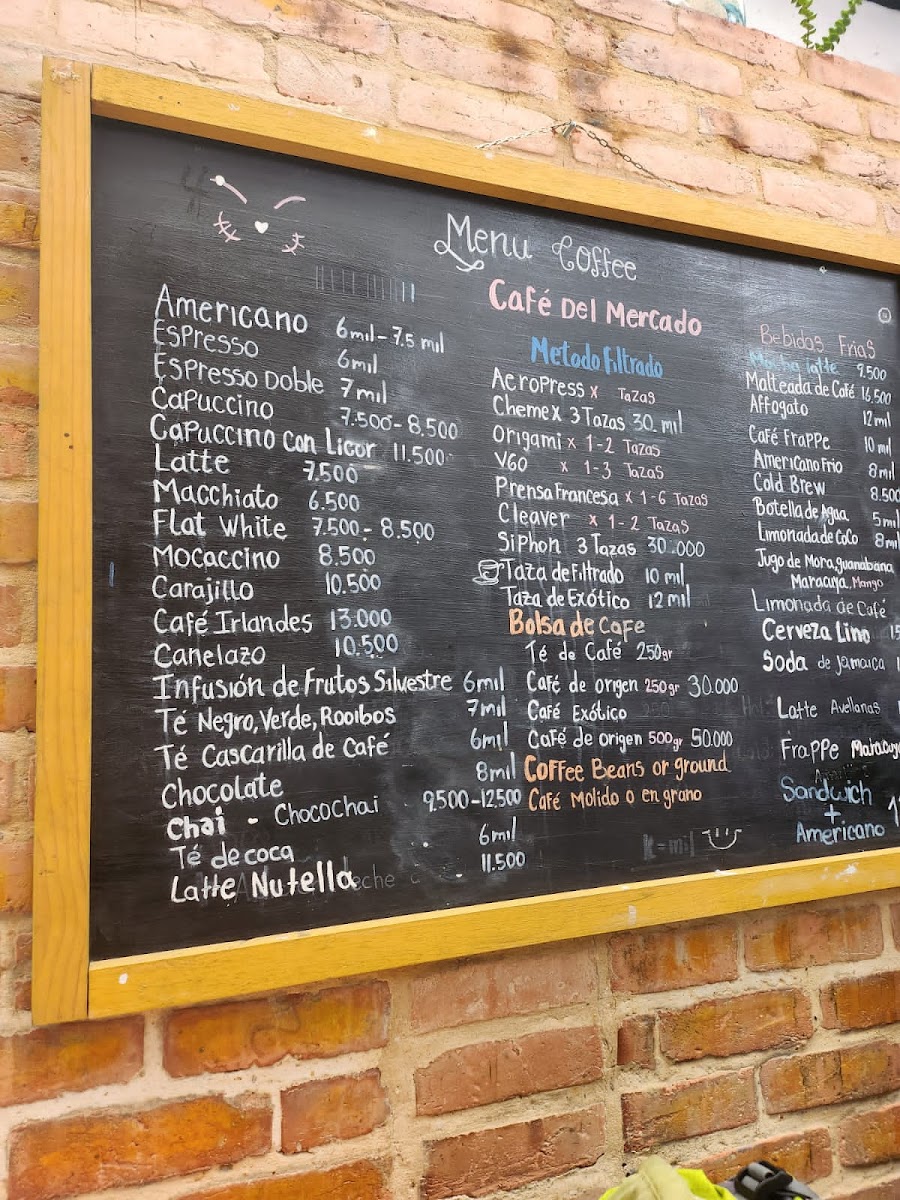 Menu Coffee
Café Del Mercado
Americano 6mil - 7.5 mil
Espresso 6mil
Espresso Doble 7mil
Capuccino 7.500 - 8.500
Capuccino con Licor 11.500
Latte 7.500
Macchiato 6.500
Flat White 7.500 - 8.500
Mocaccino 8.500
Carajillo 10.500
Café Irlandes 13.000
Canelazo 10.500
Infusión de Frutos Silvestre 6mil
Té Negro, Verde, Rooibos 7mil
Té Cascarilla de Café 6mil
Chocolate 8mil
Chai - ChocoChai 9.500-12.500
Té de coca 6mil
Latte Nutella 11.500
Metodo filtrado
Aeropress x Tazas
Chemex 3 Tazas 30 mil
Origami x 1-2 Tazas
V60 x 1-3 Tazas
Prensa Francesa x 1-6 Tazas
Cleaver x 1-2 Tazas
Siphon 3 Tazas 30.000
Taza de Filtrado 10 mil
Taza de Exótico 12 mil
Bolsa de Cafe
Té de Café 250gr
Café de origen 250gr 30.000
Café Exótico
Café de origen 500gr 50.000
Coffee Beans or ground
Café Molido o en grano
Bebidas Frias
Mocha latte 9.500
Malteada de Café 16.500
Affogato 12mil
Café Frappe 10mil
Americano Frio 8mil
Cold Brew 8.500
Botella de Agua 5mil
Limonada de Coco 8mil
Jugo de Mora, guanabana
Maracuya, Mango
Limonada de Café
Cerveza Lino
Soda de jamaica
Latte Avellanas
Frappe
Sandwich
+
Americano